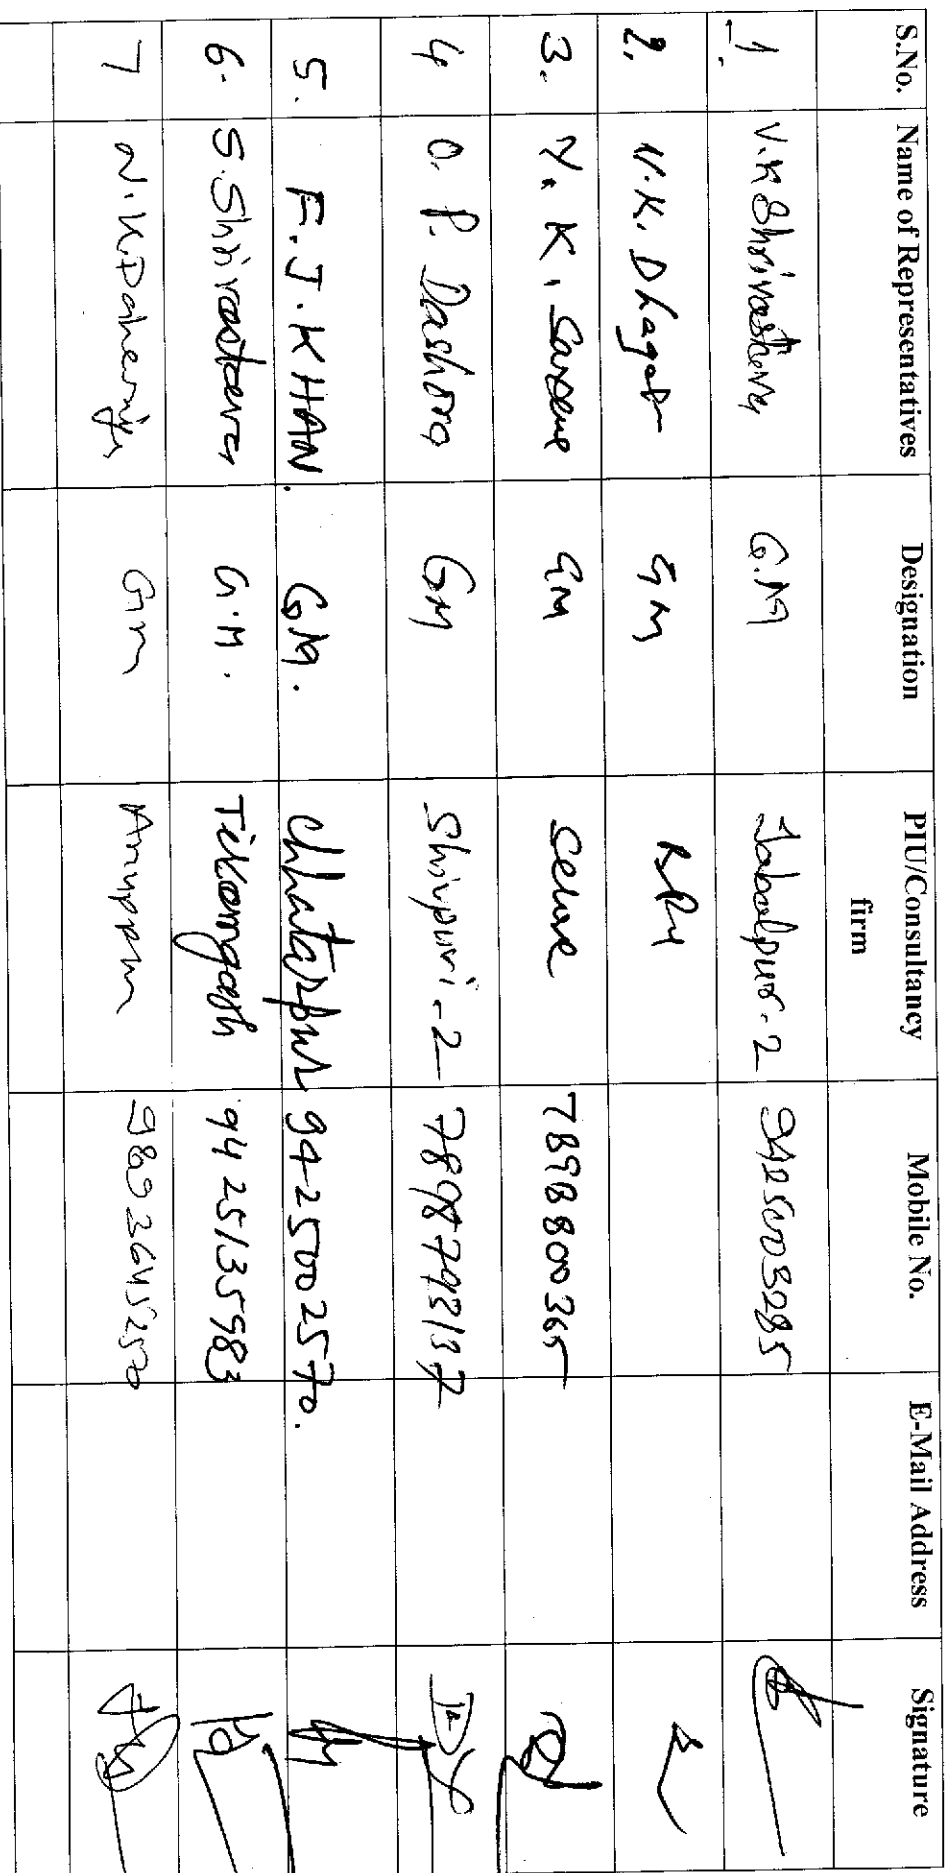 S.No. Name of Representatives Designation PIU/Consultancy firm Mobile No. E-Mail Address Signature
1. V.K Shrivastava G.M Jabalpur-2 9425003285
2. V.K. Dhagat GM
3. Y.K. Saxena GM Sehore 7898800365
4 O.P. Dashora GM Shivpuri-2 7898793137
5. F.J. KHAN. GM. Chhatarpur 9425002570.
6. S. Shrivastava G.M. Tikamgarh 9425135983
7 N.K. Gm 9893264525